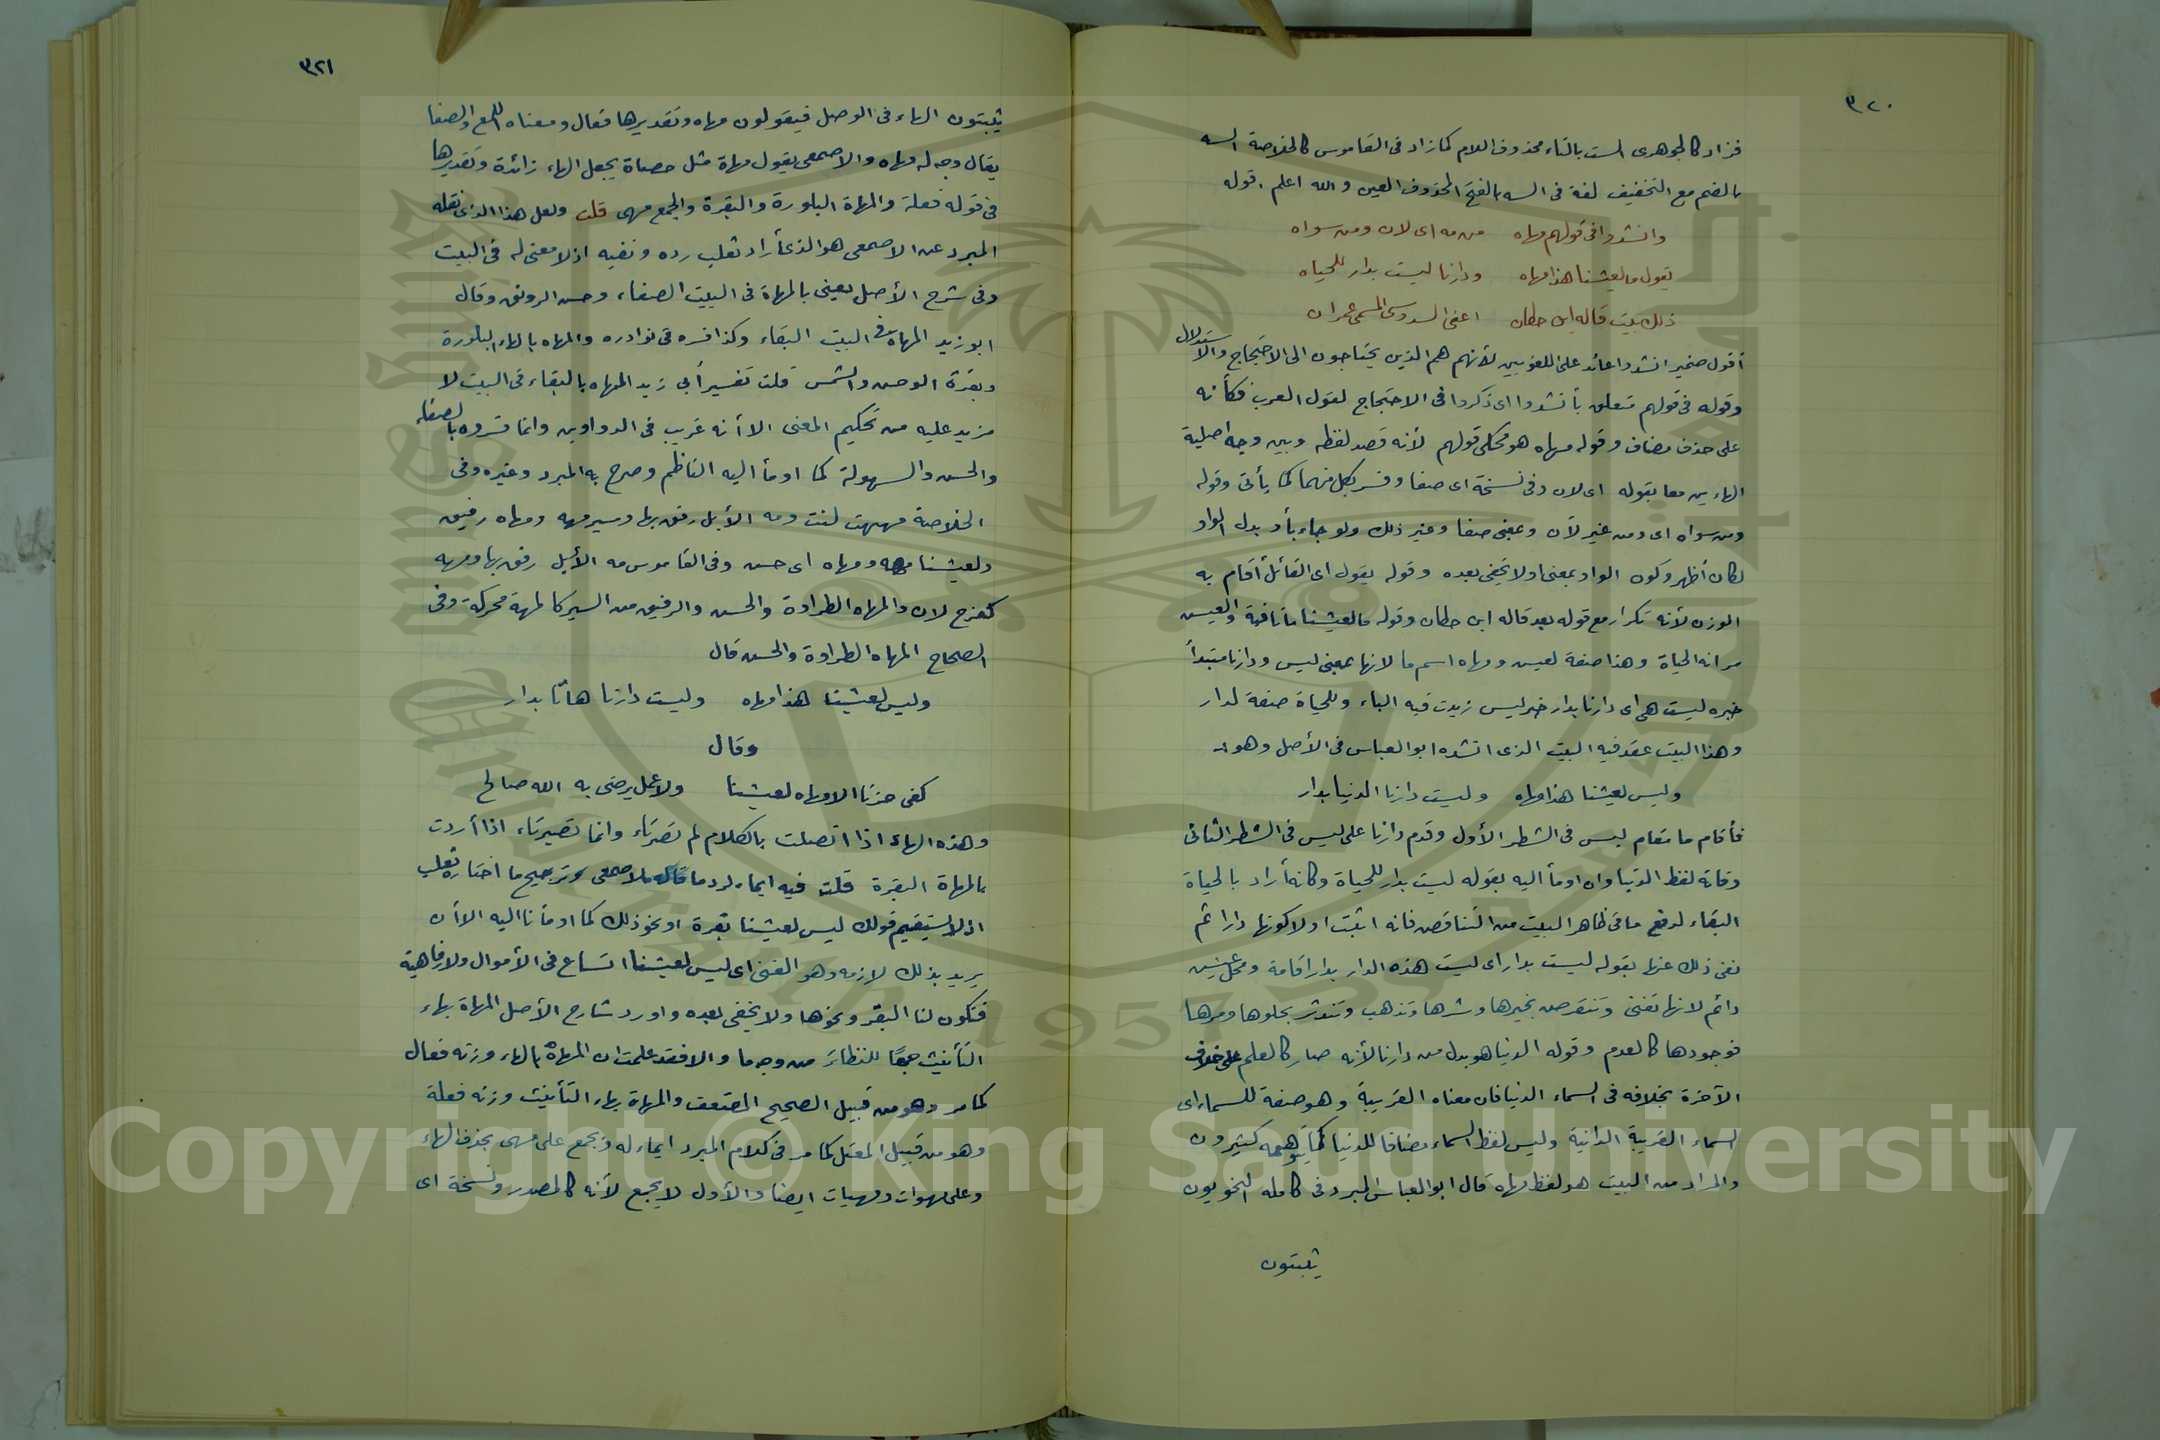 ٣٢٠
فزاد كالجوهرى الست بالتاء محذوف اللام كما زاد فى القاموس كالخلاصة السه
بالضم مع التخفيف لغة فى السه بالفتح المحذوف العين والله اعلم . قوله
وانشدوا فى قولهم مهاه من مه اى لان ومن سواه
يقول ما لعيشنا هذا مهاه ودارنا ليست بدار للحياه
ذلك بيت قاله ابن حطان اعنى السدوسى المسمى عمران
أقول ضمير انشدوا عائد على اللغويين لأنهم هم الذين يحتاجون الى الاحتجاج والاستدلال
وقوله فى قولهم متعلق بأنشدوا اى ذكروا فى الاحتجاج لقول العرب فكأنه
على حذف مضاف وقوله مهاه هو محكى قولهم لأنه قصد لفظه وبين وجه اصلية
الهاءين معا بقوله اى لان وفى نسخة اى صفا وفسر بكل منهما كما يأتى وقوله
ومن سواه اى ومن غير لأن وبمعنى صفا وغير ذلك ولو جاء بأو بدل الواو
لكان أظهر وكون الواو بمعنى او لا يخفى بعده وقوله يقول اى القائل أقام به
الوزن لأنه تكرار مع قوله بعد قاله ابن حطان وقوله ما لعيشنا ما نافية والعيش
مر انه الحياة وهذا صفة لعيش ومهاه اسم ما لانها بمعنى ليس ودارنا مبتدأ
خبره ليست هى اى دارنا بدار خبر ليس زيدت فيه الباء وللحياة صفة لدار
وهذا البيت عقد فيه البيت الذى انشده ابو العباس فى الأصل وهو :
وليس لعيشنا هذا مهاه وليست دارنا الدنيا بدار
فأقام ما مقام ليس فى الشطر الأول وقدم دارنا على ليس فى الشطر الثانى
وفاته لفظ الدنيا وان اومأ اليه بقوله ليست بدار للحياة وكأنه أراد بالحياة
البقاء لدفع ما فى ظاهر البيت من التناقض فانه اثبت اولا كونها دارا ثم
نفى ذلك عنها بقوله ليست بدار اى ليست هذه الدار بدار اقامة ومحل عيش
دائم لانها تفنى وتنقرض بخيرها وشرها وتذهب وتندثر بحلوها ومرها
فوجودها كالعدم وقوله الدنيا هو بدل من دارنا لأنه صار كالعلم على خلاف
الآخرة بخلافه فى السماء الدنيا فان معناه القريبة وهو صفة للسماء اى
السماء القريبة الدانية وليس لفظ السماء مضافا للدنيا كما يتوهمه كثيرون
والمراد من البيت هو لفظ مهاه قال ابو العباس المبرد فى كامله النحويون
يثبتون
٣٢١
يثبتون الهاء فى الوصل فيقولون مهاه وتقديرها فعال ومعناه اللمع والصفا
يقال وجه له مهاه والاصمعى يقول مهاة مثل حصاة يجعل الهاء زائدة وتقديرها
فى قوله فعلة والمهاة البلورة والبقرة والجمع مهى قلت ولعل هذا الذى نقله
المبرد عن الاصمعى هو الذى أراد ثعلب رده ونفيه اذ لا معنى له فى البيت
وفى شرح الأصل يعنى بالمهاة فى البيت الصفاء وحسن الرونق وقال
ابو زيد المهاه فى البيت البقاء وكذا فسره فى نوادره والمهاه بالهاء البلورة
وبقرة الوحش والشمس قلت تفسير أبى زيد المهاه بالبقاء فى البيت لا
مزيد عليه من تحكيم المعنى الا أنه غريب فى الدواوين وانما فسروه بالصفاء
والحسن والسهولة كما اومأ اليه الناظم وصرح به المبرد وغيره وفى
الخلاصة مههت لنت ومه الأبل رفق بها وسير مهه ومهاه رفيق
ولعيشنا مهه ومهاه اى حسن وفى القاموس مه الأبل رفق بها ومهه
كفرح لان والمهاه الطراوة والحسن والرفيق من السير كالمهة محركة وفى
الصحاح المهاه الطراوة والحسن قال
وليس لعيشنا هذا مهاه وليست دارنا هاتا بدار
وقال
كفى حزنا الا مهاه لعيشنا ولا عمل يرضى به الله صالح
وهذه الهاء اذا اتصلت بالكلام لم تصر تاء وانما تصير تاء اذا أردت
بالمهاة البقرة قلت فيه ايماء لرد ما قاله الاصمعى وترجيح ما اختاره ثعلب
اذ لا يستقيم قولك ليس لعيشنا بقرة او نحو ذلك كما اومأنا اليه الا أن
يريد بذلك لازمه وهو الغنى اى ليس لعيشنا اتساع فى الأموال ولا رفاهية
فتكون لنا البقر ونحوها ولا يخفى بعده واورد شارح الأصل المهاة بهاء
التأنيث جمعًا للنظائر من وجه ما والا فقد علمت ان المهاه بالهاء وزنه فعال
كما مر وهو من قبيل الصحيح المضعف والمهاة بهاء التأنيث وزنه فعلة
وهو من قبيل المعتل كما مر فى كلام المبرد ايماء له ويجمع على مهى بحذف الهاء
وعلى مهوات ومهيات ايضا والأول لا يجمع لأنه كالمصدر ونسخة اى
Copyright © King Saud University
1957